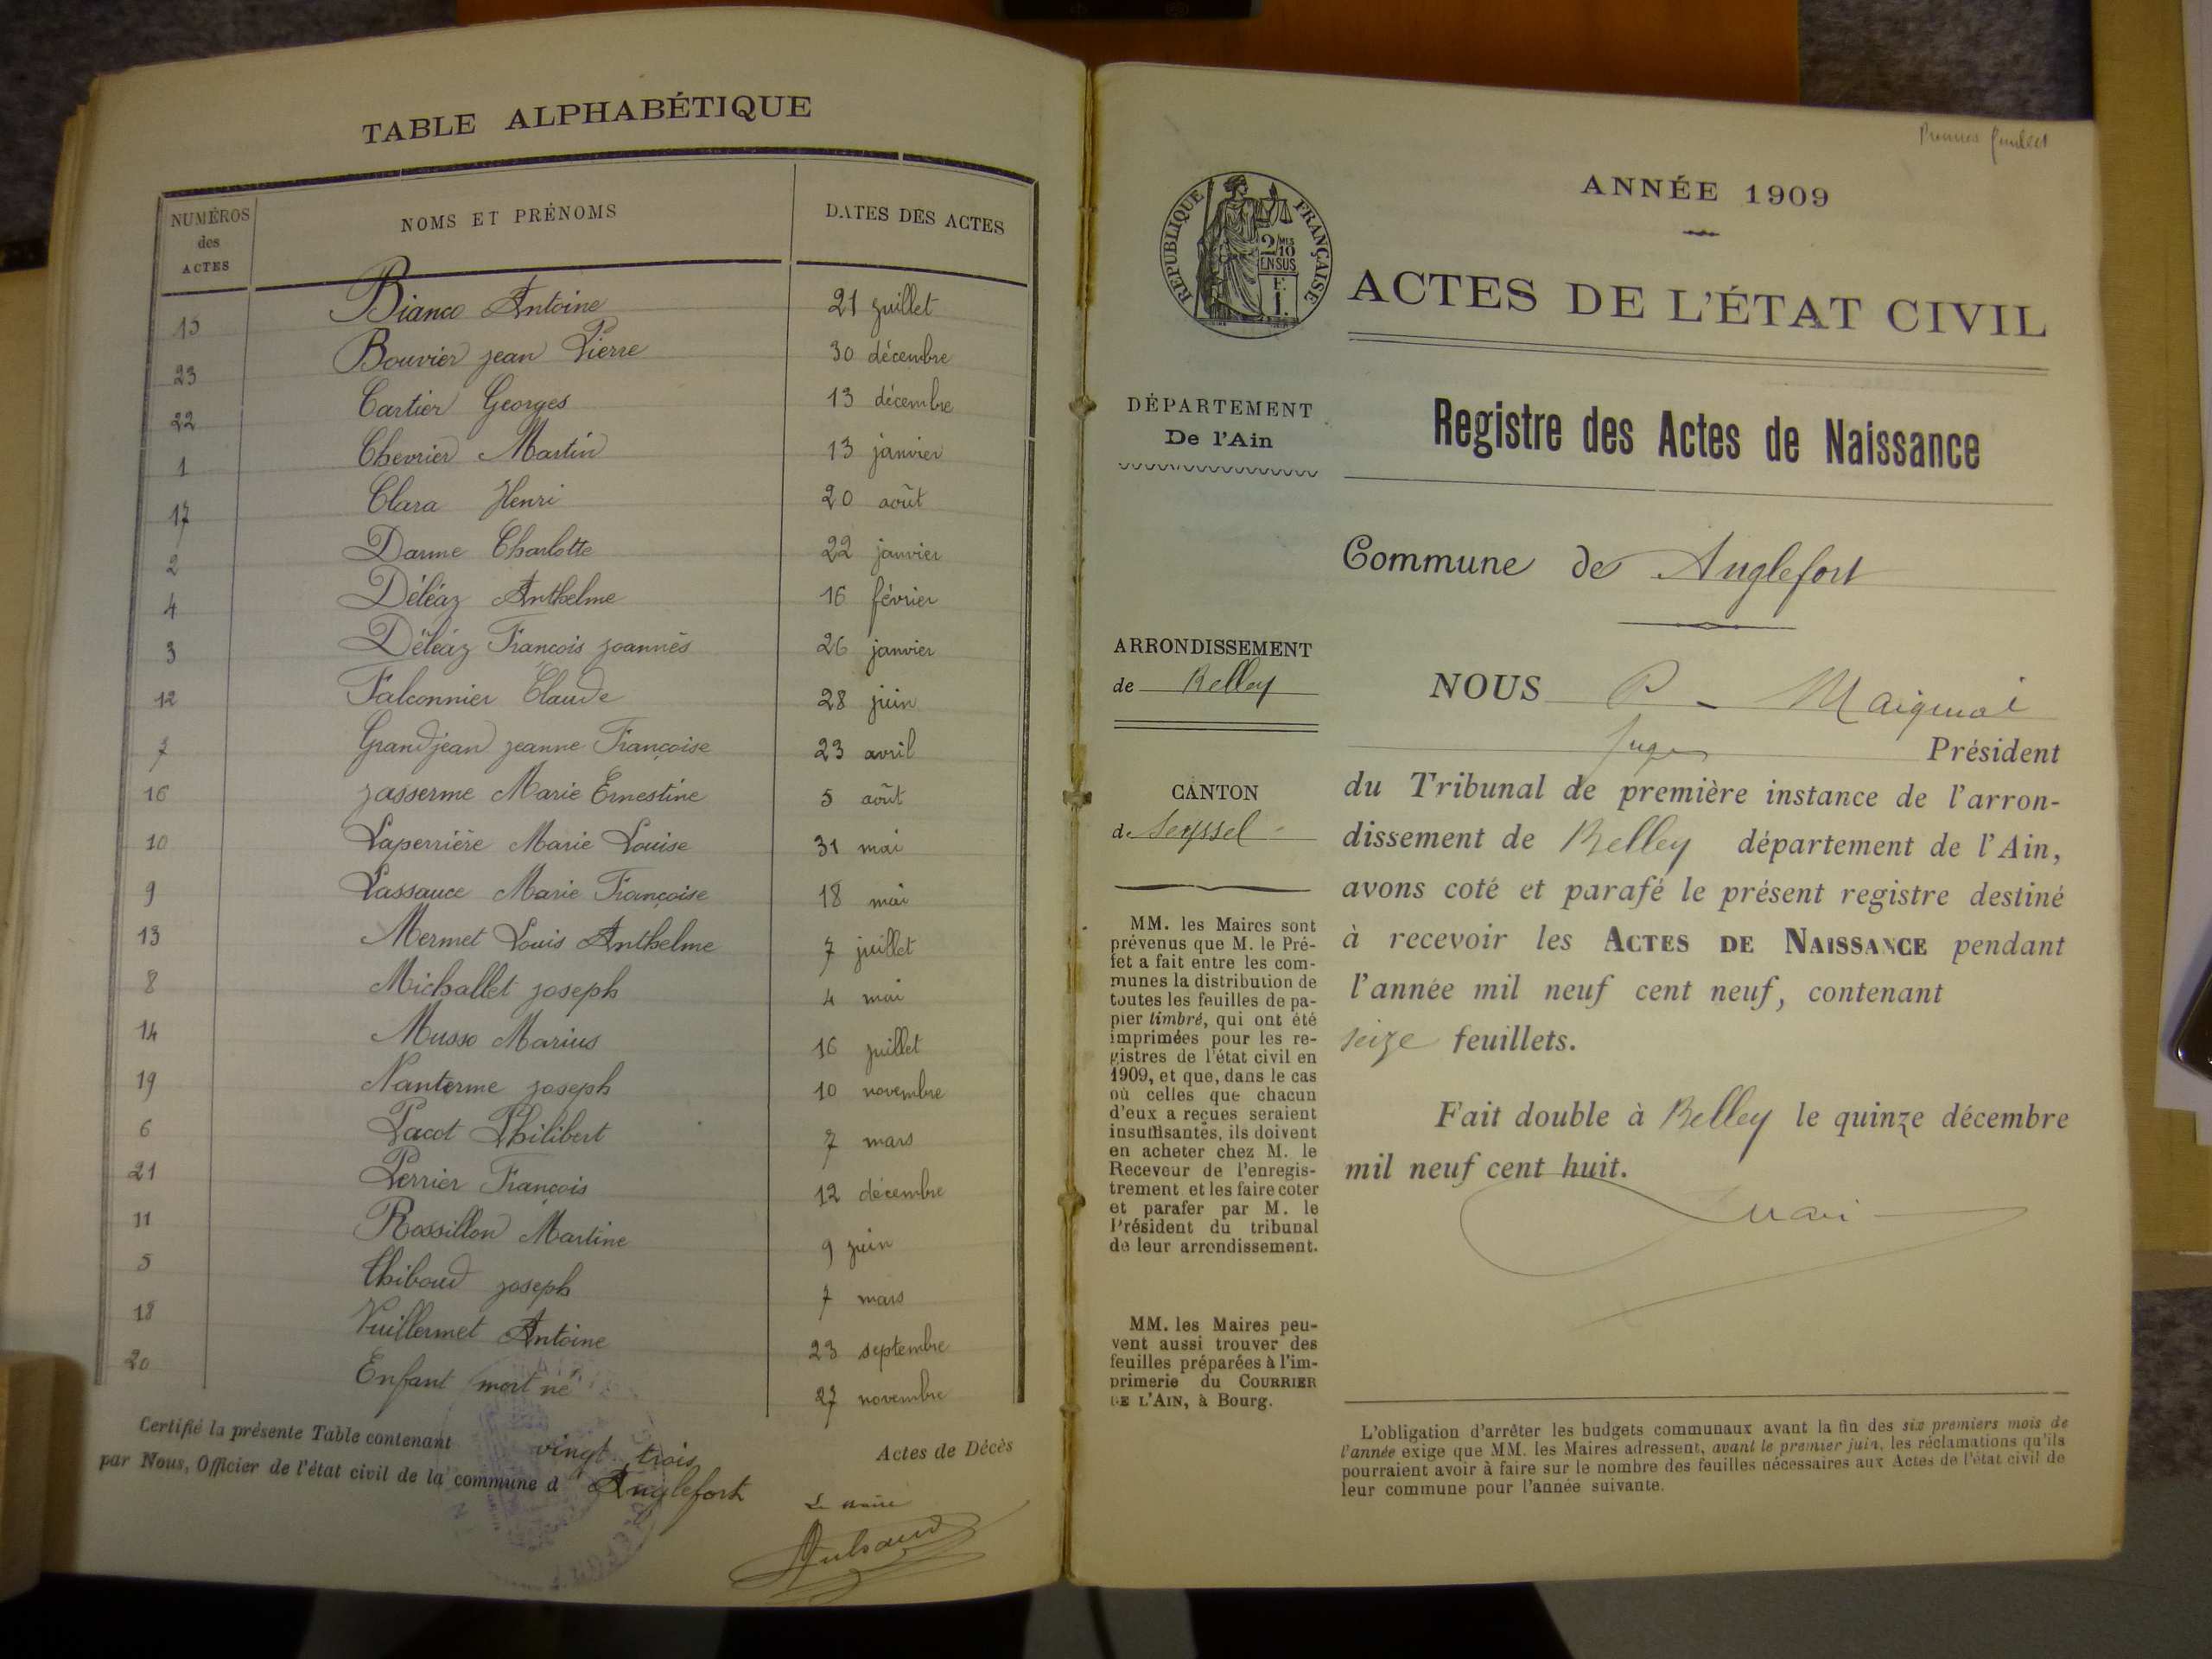 TABLE ALPHABÉTIQUE
NUMÉROS des ACTES NOMS ET PRÉNOMS DATES DES ACTES
15 Bianco Antoine 21 juillet
23 Bouvier jean Pierre 30 décembre
22 Cartier Georges 13 décembre
1 Chevrier Martin 13 janvier
17 Clara Henri 20 août
2 Darme Charlotte 22 janvier
4 Déléaz Anthelme 16 février
3 Déléaz François joannès 26 janvier
12 Falconnier Claude 28 juin
7 Grandjean jeanne Françoise 23 avril
16 jasserme Marie Ernestine 5 août
10 Laperrière Marie Louise 31 mai
9 Lassauce Marie Françoise 18 mai
13 Mermet Louis Anthelme 7 juillet
8 Michallet joseph 4 mai
14 Musso Marius 16 juillet
19 Nanterme joseph 10 novembre
6 Pacot Philibert 7 mars
21 Perrier François 12 décembre
11 Rossillon Martine 9 juin
5 Thiboud joseph 7 mars
18 Vuillermet Antoine 23 septembre
20 Enfant mort né 27 novembre
Certifié la présente Table contenant vingt trois Actes de Décès
par Nous, Officier de l'état civil de la commune d Anglefort
Le maire
ANNÉE 1909
RÉPUBLIQUE FRANÇAISE
2/10 MES
EN SUS
F.
1.
ACTES DE L'ÉTAT CIVIL
DÉPARTEMENT
De l'Ain
Registre des Actes de Naissance
Commune de Anglefort
ARRONDISSEMENT
de Belley
CANTON
de Seyssel
MM. les Maires sont
prévenus que M. le Pré-
fet a fait entre les com-
munes la distribution de
toutes les feuilles de pa-
pier timbré, qui ont été
imprimées pour les re-
gistres de l'état civil en
1909, et que, dans le cas
où celles que chacun
d'eux a reçues seraient
insuffisantes, ils doivent
en acheter chez M. le
Receveur de l'enregis-
trement et les faire coter
et parafer par M. le
Président du tribunal
de leur arrondissement.
MM. les Maires peu-
vent aussi trouver des
feuilles préparées à l'im-
primerie du COURRIER
DE L'AIN, à Bourg.
NOUS P.
Juge Président
du Tribunal de première instance de l'arron-
dissement de Belley département de l'Ain,
avons coté et parafé le présent registre destiné
à recevoir les ACTES DE NAISSANCE pendant
l'année mil neuf cent neuf, contenant
seize feuillets.
Fait double à Belley le quinze décembre
mil neuf cent huit.
L'obligation d'arrêter les budgets communaux avant la fin des six premiers mois de
l'année exige que MM. les Maires adressent, avant le premier juin, les réclamations qu'ils
pourraient avoir à faire sur le nombre des feuilles nécessaires aux Actes de l'état civil de
leur commune pour l'année suivante.